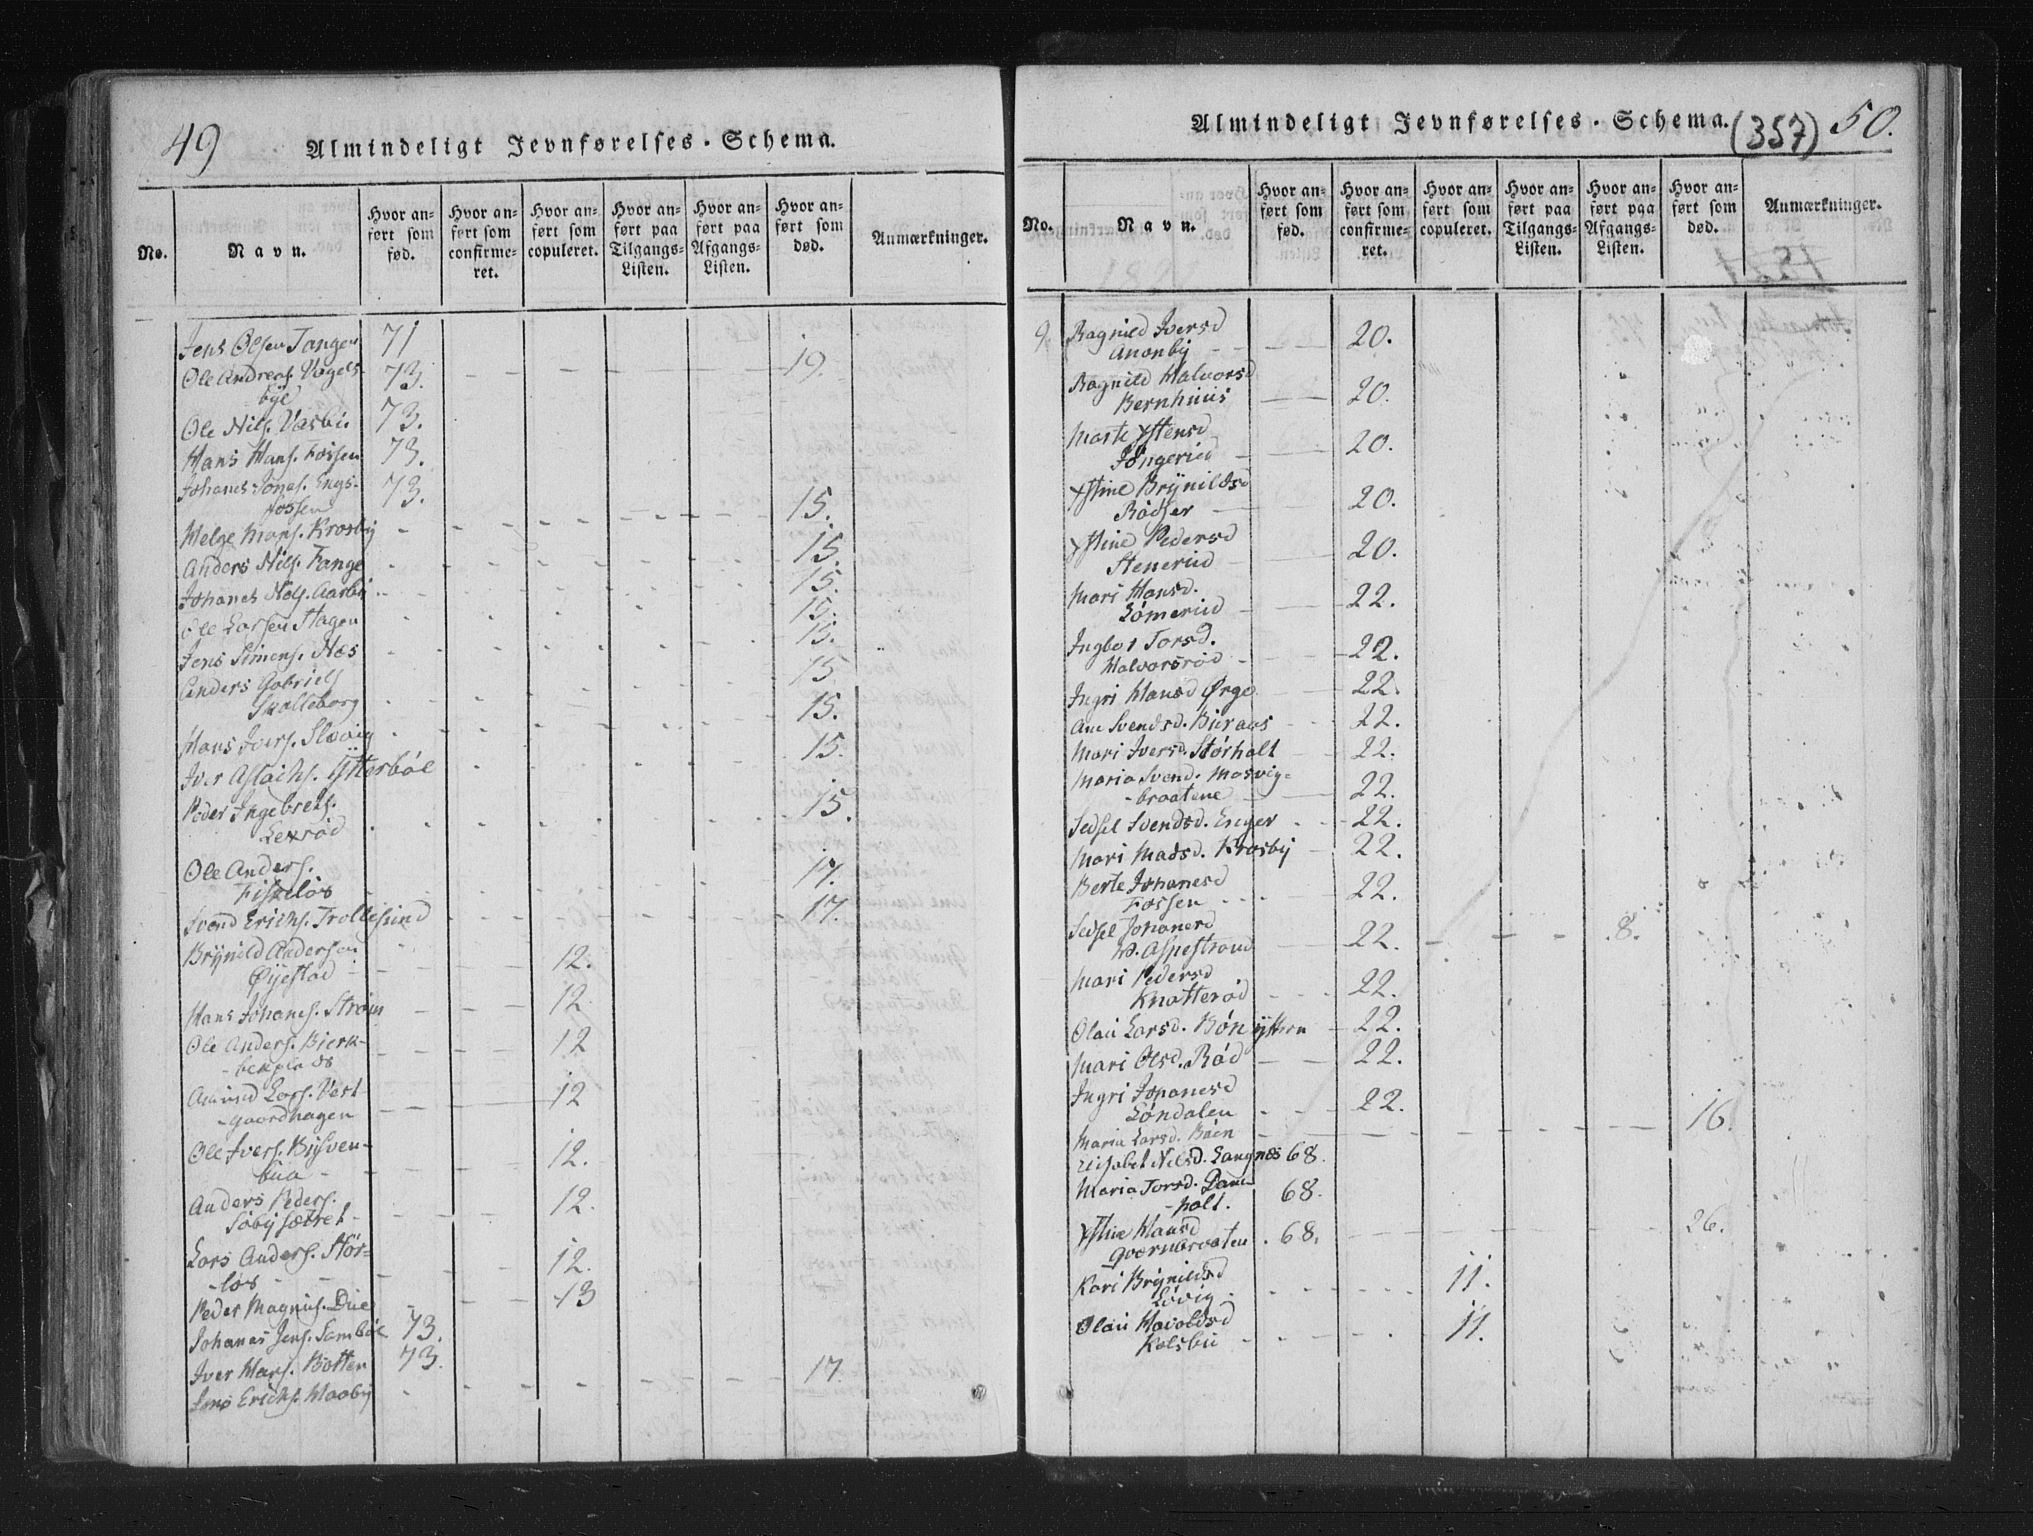 49
Almindeligt Jevnførelses-Schema.
No.
Navn.
Hvor anført som fød.
Hvor anført som confirmeret.
Hvor anført som copuleret.
Hvor anført paa Tilgangs-Listen.
Hvor anført paa Afgangs-Listen.
Hvor anført som død.
Anmærkninger.
Jens Olsen Tangen 71
Ole Andreas. Vogels- 73. 19.
bye
Ole Nils. Vasbu. 73.
Hans Hans. Fossen 73.
Johanes Jonas. Engs- 73.
fossen
Helge Mons. Krosby 15.
Anders Nils. Tange 15.
Johanes Nels. Aasby 15.
Ole Larsen Hagen 15.
Jens Simens. Næs 15.
Anders Gabriels
Skalleborg 15
Hans Ivers. Slevig 15.
Iver Aslachs. Ytterböl 15.
Peder Ingebrets.
Lexröd 15.
Ole Anders.
Fiskelös 17.
Svend Erichs. Trollesund 17.
Brynild Andersen
Öyestad 12.
Hans Johanes. Ström 12.
Ole Anders. Bierk- 12
Amund Lars. Vest-
-gaardhagen 12
Ole Ivers. Bysven-
bua 12.
Anders Peders.
Söbysætret 12.
Lars Anders. Stór-
-lös 12.
Peder Magnus. Due 13
Johanes Jens. Sambøl 73.
Iver Hans. Botten 73.
Jens Erichs. Haaby 17.
Almindeligt Jevnførelses-Schema. (357) 50.
No.
Navn.
Hvor anført som fød.
Hvor anført som confirmeret.
Hvor anført som copuleret.
Hvor anført paa Tilgangs-Listen.
Hvor anført paa Afgangs-Listen.
Hvor anført som død.
Anmærkninger.
9. Ragnild Iversd
Anonby 20.
Ragnild Halvorsd
Bernhuus 20.
Marte Ystensd
Jöngerud 20.
Ystine Brynildsd
Rödser 20.
Ystine Pedersd
Stenerud 20.
Mari Hansd.
Lömerud 22.
Ingbor Torsd.
Halvorsröd 22.
Ingri Hansd Ørge 22.
Ane Svendsd. Buraas 22.
Mari Iversd. Störholt 22.
Maria Svend. Mosvig-
-braatene 22.
Sedsel Svendsd. Enger 22.
Mari Madsd. Krosby 22.
Berte Johanesd
Fossen 22.
Sedsel Johanesd
N. Aspestrand 22. 8.
Mari Pedersd
Knatteröd 22.
Olau Larsd. Bön ythen 22.
Mari Olsd. Röd 22.
Ingri Johanesd
Löndalen 22.
Maria Larsd. Böen 16.
Elisabet Nilsd. Langnæs 68.
Maria Torsd. Dam-
-holt. 68.
Ystine Hansd
Qværnbraaten 68. 26.
Kari Brynildsd
Lövig 11.
Olau Havoldsd
Kolsbu 11.